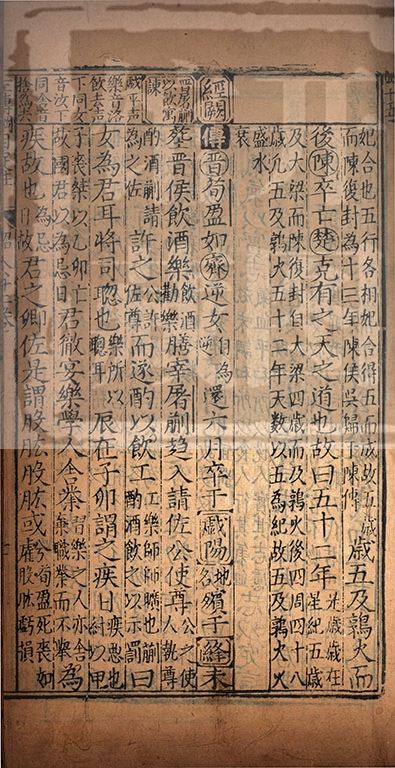 妃合也五行各相妃合得五而成故五歲
而陳復封為十三年陳侯吳歸于陳傳
歲五及鶉火而
後陳卒亡楚克有之天之道也故曰五十二年
是歲歲在
星紀五歲
及大梁而陳復封自大梁四歲而及鶉火後四周四十八
歲凡五及鶉火五十二年天數以五為紀故五及鶉火火
盛水
衰
經闕
傳晉荀盈如齊逆女
自為
逆
還六月卒于戲陽
地
名
殯于絳未
屠蒯
以飲寓
諫
葬晉侯飲酒樂
膳宰屠蒯趨入請佐公使尊
公之使
人執尊
酌酒蒯請
為之佐
許之
公許
佐尊
而遂酌以飲工
工樂師師曠也蒯
酌酒飲之以示罰
曰
戲平聲
樂音洛
飲去聲
下同女
音汝下
同舍音
捨為去
女為君耳將司聰也
樂所以
聰耳
辰在子卯謂之疾日
疾惡也
紂以甲
子喪桀以乙卯亡
故國君以為忌日
君徹宴樂學人舍業
為
疾故也
為忌
日故
君之卿佐是謂股肱股肱或虧
荀盈死喪如